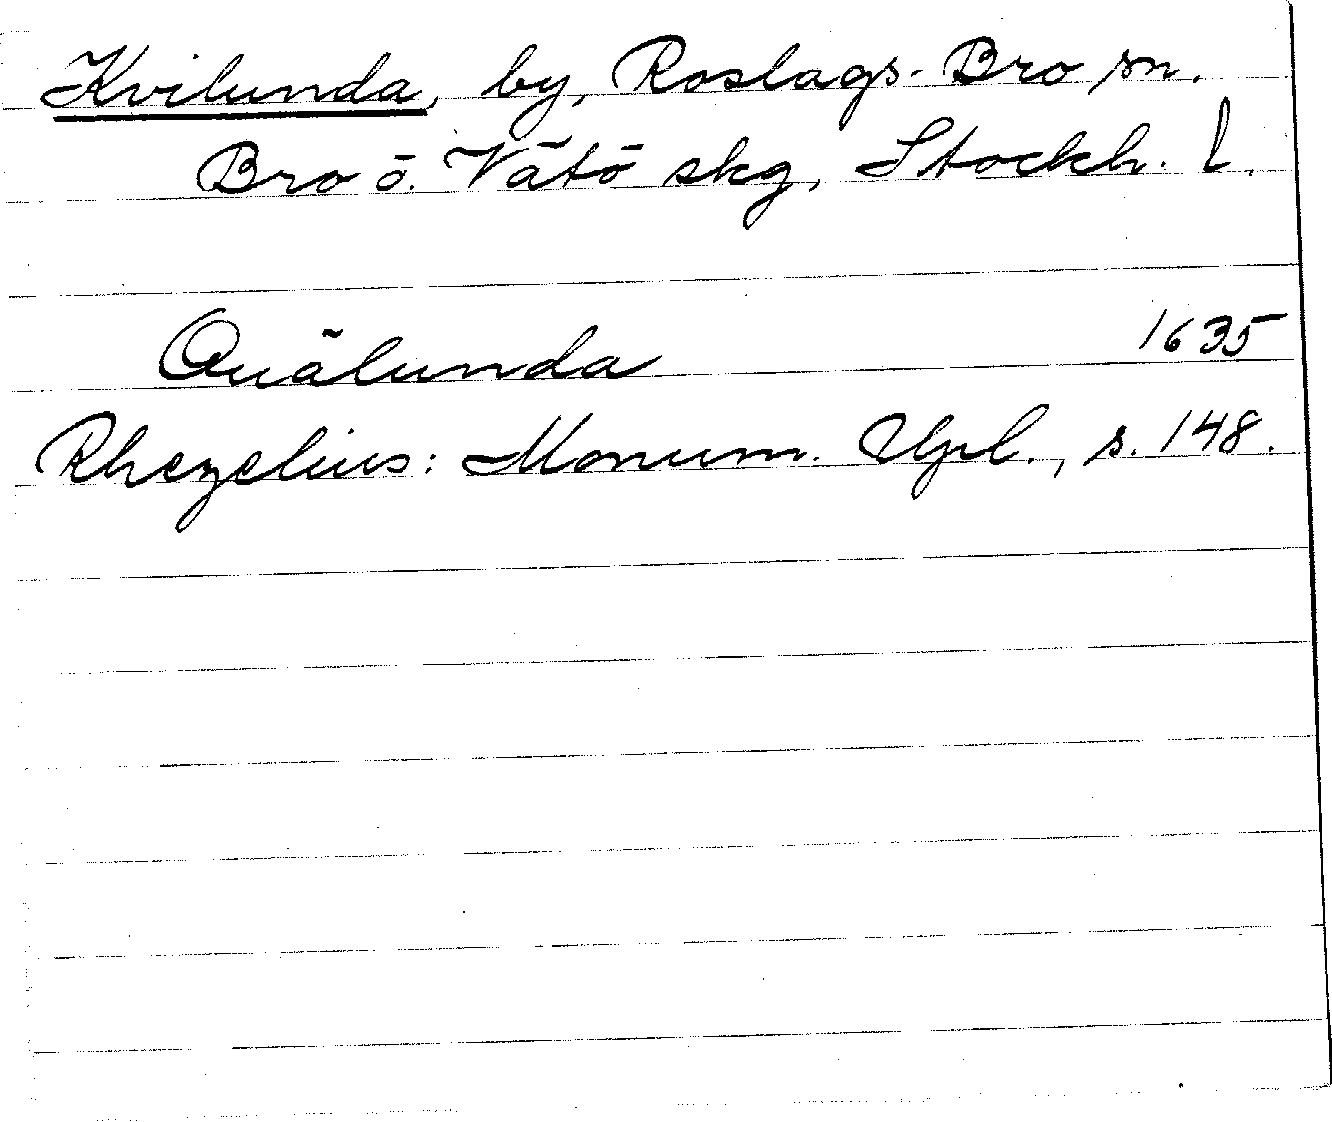 Kvilunda, by, Roslags-Bro sn.
Bro ö. Vätö skg, Stockh. l.
Quälunda 1635
Rhezelius: Monum. Upl., s. 148.